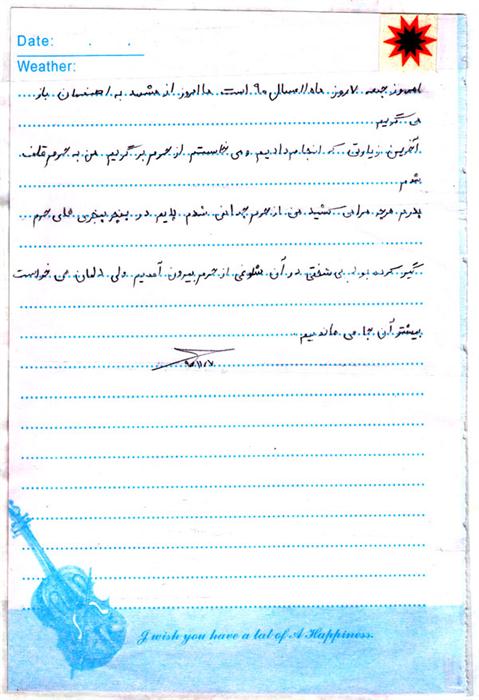 Date: . .
Weather:
امروز جمعه ۷ روز، ماه ۱۱ سال ۹۰ است. ما امروز از مشهد به اصفهان باز
می گردیم
آخرین زیارتی که انجام دادیم و می خاستیم از حرم بر گردیم من به حرم قلف
شدم
پدرم هرچه مرا می کشید من از حرم جدا نمی شدم پایم در پنچر پنجری های حرم
گیر کرده بود. بی سختی در آن شلوغی از حرم بیرون آمدیم ولی دلمان می خواست
بیشتر آن جا می ماندیم.
۹۰/۱۱/۷
I wish you have a lat of A Happiness.